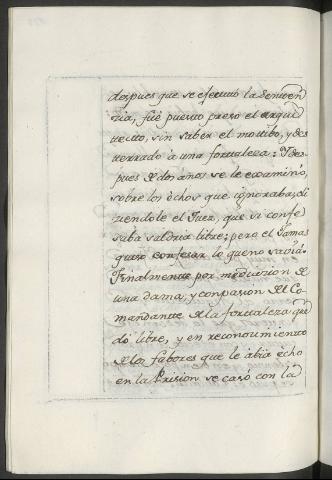 despues que se efectuó la Senten
zia, fué puesto preso el Arqui
tecto, sin saber el mottibo, y des
terrado à una fortaleza: Y des
pues de dos años se le examinó,
sobre los èchos que ignoraba; di
ziendole el Juez, que si confe
saba saldria libre; pero el Jamas
quiso confesar lo que no savia.
Finalmente por mediacion de
una dama, y conpasion del Co
mandante de la fortaleza que
dó libre, y en reconocimiento
de los fabores que le abia echo
en la Prision se casó con la